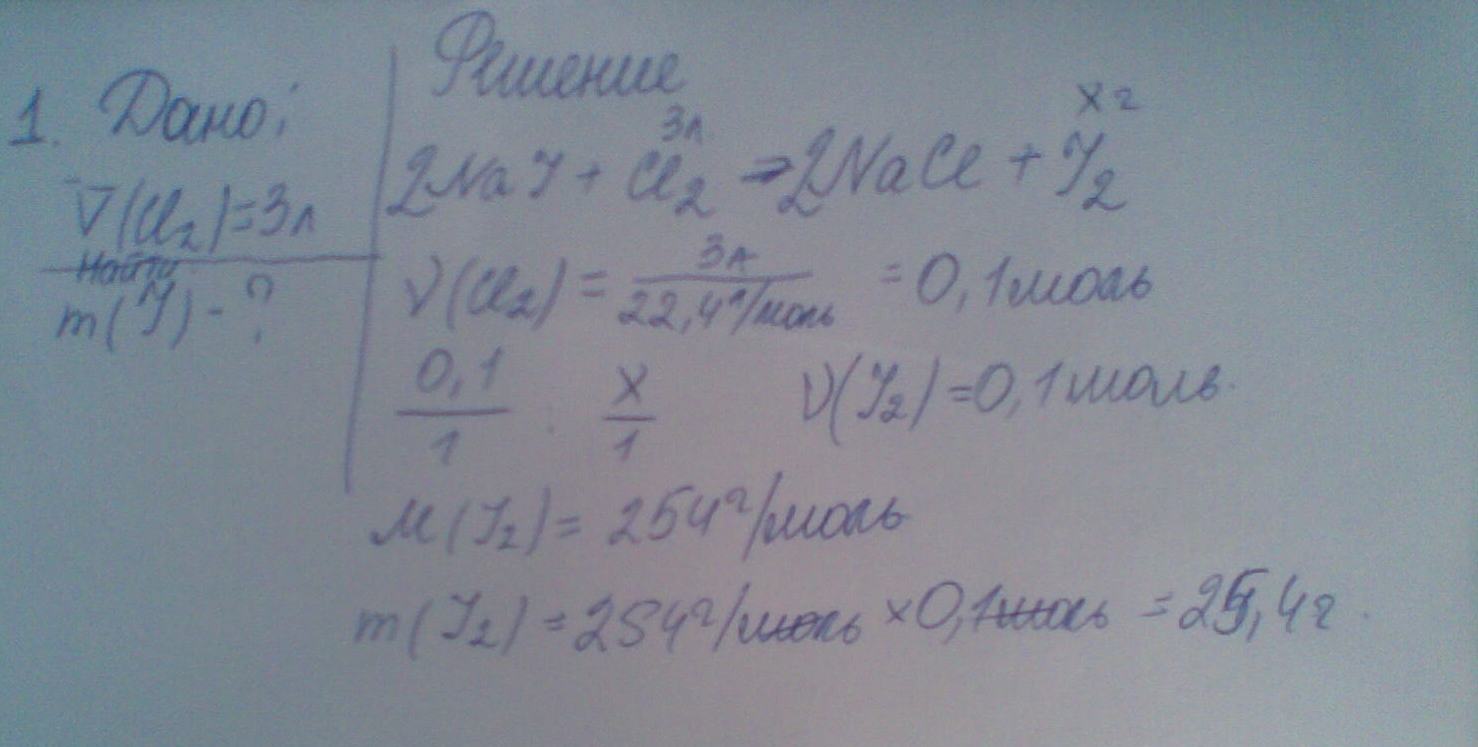 1. Дано:
V(Cl₂)=3л
Найти
m(J)-?
Решение
3л
x г
2NaJ + Cl₂ → 2NaCl + J₂
ν(Cl₂) = 3л/22,4г/моль = 0,1моль
0,1/1 : x/1 ν(J₂)=0,1моль.
M(J₂)= 254г/моль
m(J₂)=254г/моль ×0,1моль =25,4г.